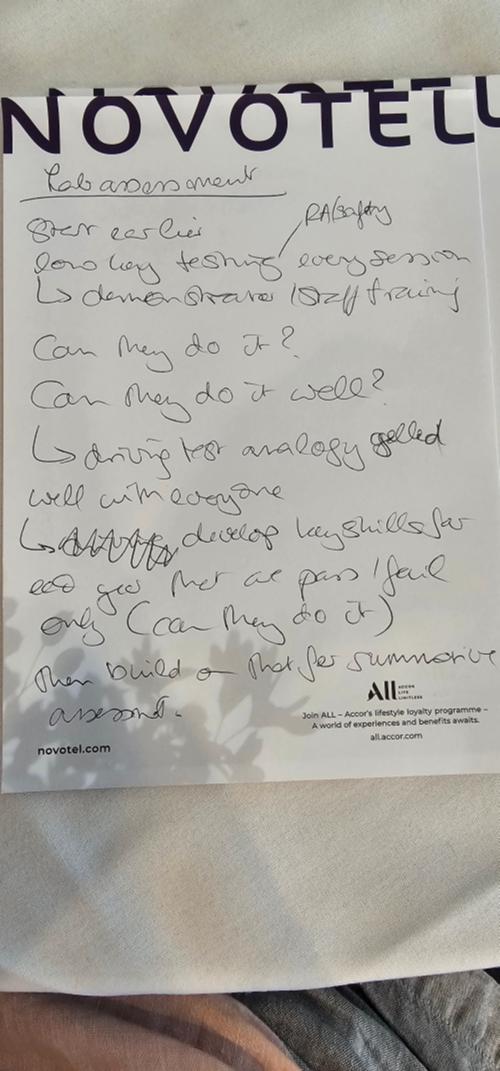 NOVOTEL
Lab assessment
Start earlier
RA/safety
low key testing every session
↳ demonstrator / staff training
Can they do it?
Can they do it well?
↳ driving test analogy gelled
well with everyone
↳ develop key skills for
each year that are pass / fail
only (can they do it)
then build on that for summative
assessment.
All ACCOR
LIVE
LIMITLESS
Join ALL – Accor's lifestyle loyalty programme –
A world of experiences and benefits awaits.
all.accor.com
novotel.com